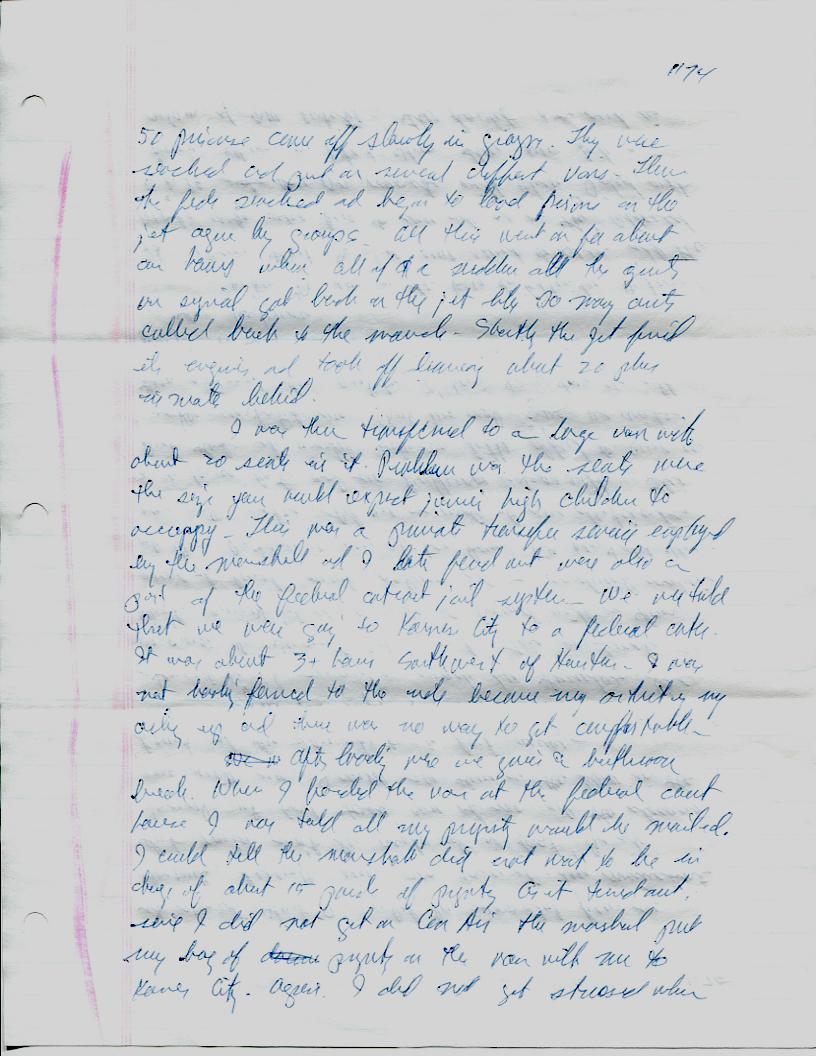 1174
50 prisone come off slowly in groups. They were
searched and put on several different vans. Then
the feds searched ad began to load prisone on the
jet again by groups. All this went on for about
an hours when all of a sudden all the guards
on signal got back on the jet like so many ants
called back to the mound. Shortly the jet fired
its engines ad took off leaving about 20 plus
inmate behind.
I was then transferred to a large van with
about 20 seats in it. Problem was the seats were
the size you would expect junior high children to
occuppy. This was a private transfer service employed
by the marshall ad I late found out were also a
part of the federal contract jail system. We were told
that we were going to Karnes City to a federal center.
It was about 3+ hours Southwest of Houston. I was
not looking forward to the ride because my arthritis in my
acting up and there was no way to get comfortable.
After loading we were a bathroom
break. When I boarded the van at the federal court
house I was told all my property would be mailed.
I could tell the marshall did not want to be in
charge of about 15 pounds of property as it turned out.
since I did not get on Con Air the marshal put
my bag of property on the van with me to
Karnes City. Again. I did not get stressed when